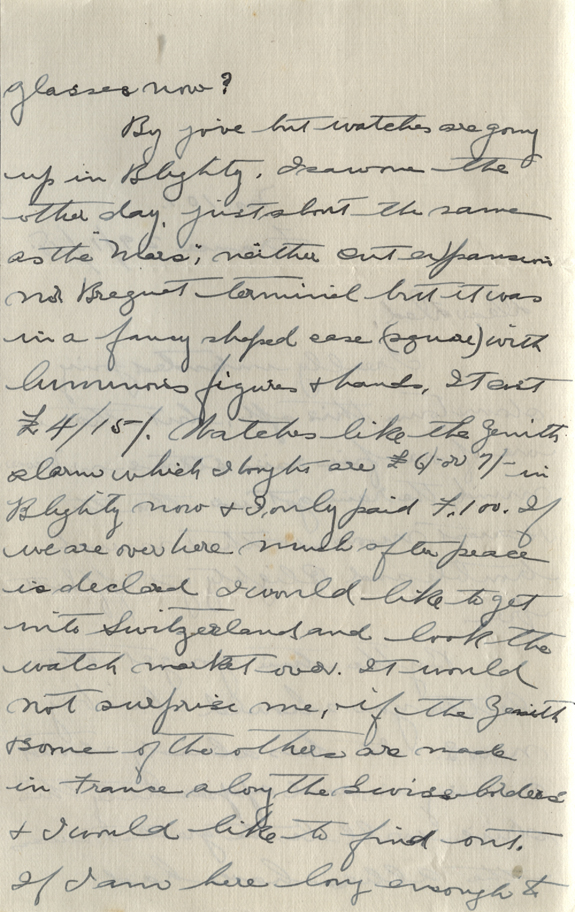 glasses now?
By jove but watches are going
up in Blighty. I saw one the
other day, just about the same
as the "Mars", neither cut expansion
nor Breguet terminal but it was
in a fancy shaped case (square) with
luminous figures & hands, It cost
£4/15/. Watches like the Zenith
alarm which I bought are £ 6/- or 7/- in
Blighty now & I only paid £.100. If
we are over here much after peace
is declared I would like to get
into Switzerland and look the
watch market over. It would
not surprise me, if the Zenith
& some of the others are made
in France along the Swiss borders
& I would like to find out.
If I am here long enough to